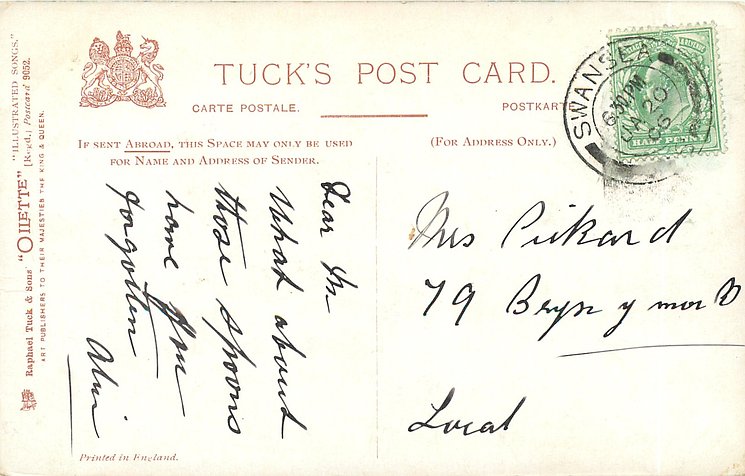 TUCK'S POST CARD.
CARTE POSTALE.
POSTKARTE
IF SENT ABROAD, THIS SPACE MAY ONLY BE USED
FOR NAME AND ADDRESS OF SENDER.
(FOR ADDRESS ONLY.)
"ILLUSTRATED SONGS."
"OILETTE" [Regd.] Postcard 9052.
Raphael Tuck & Sons'
ART PUBLISHERS TO THEIR MAJESTIES THE KING & QUEEN.
Dear
What about
those spoons
have you
forgotten
SWANSEA
6 30 PM
JA 20
06
HALF PENNY
Mrs Pickard
79 Bryn y mor
Local
Printed in England.